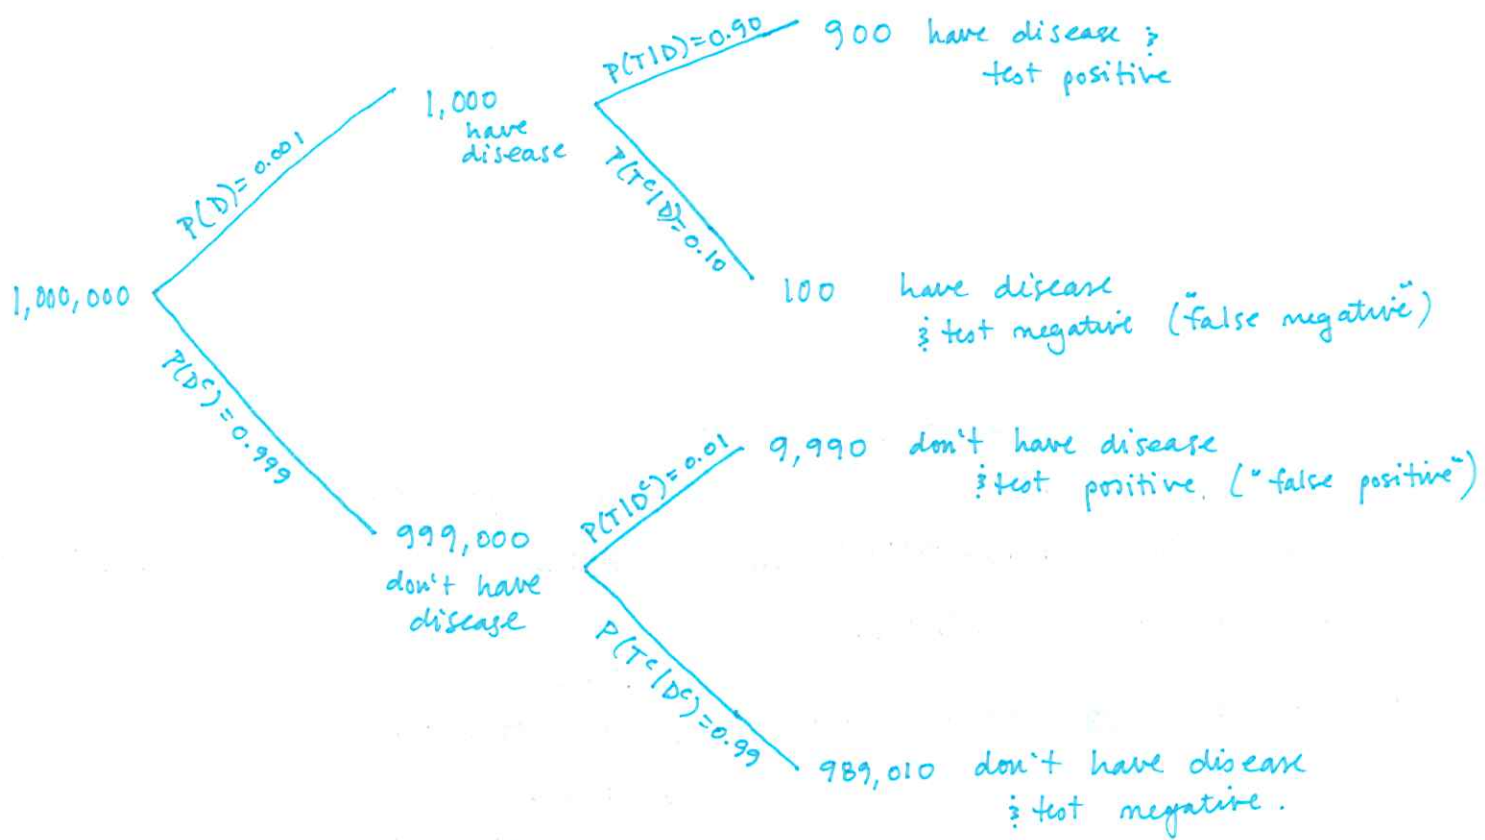 1,000,000
P(D)=0.001
1,000
have
disease
P(T|D)=0.90
900 have disease &
test positive
P(Tᶜ|D)=0.10
100 have disease
& test negative ("false negative")
P(Dᶜ)=0.999
999,000
don't have
disease
P(T|Dᶜ)=0.01
9,990 don't have disease
& test positive. ("false positive")
P(Tᶜ|Dᶜ)=0.99
989,010 don't have disease
& test negative.